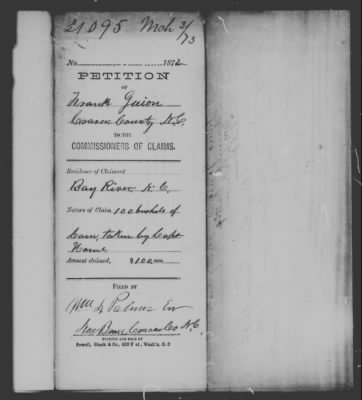 21095 Mch 3/73
No. 1872
PETITION
OF
Frank Guion
Craven County N.C.
TO THE
COMMISSIONERS OF CLAIMS.
Residence of Claimant
Bay River, N.C.
Nature of Claim 100 bushels of
taken by Capt
Home
Amount claimed, $100
FILED BY
Wm L Palmer
New Berne Craven Co N.C.
PRINTED AND SOLD BY
Powell, Ginck & Co., 632 F st., Wash'n, D. C